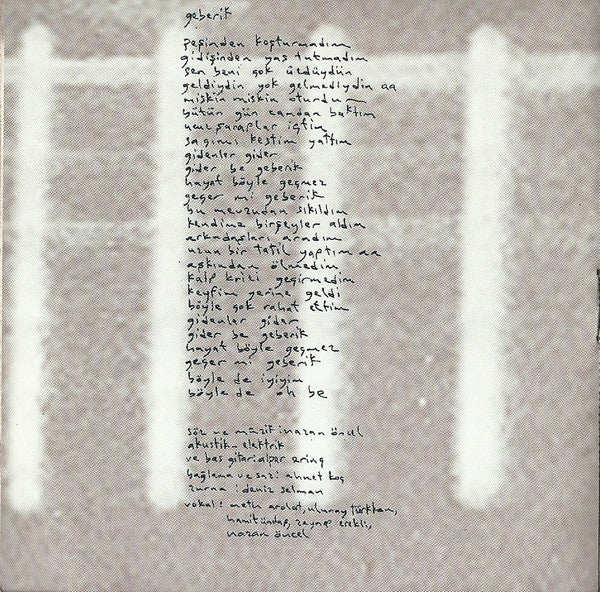 geberik
peşinden koşturmadım
gidişinden yas tutmadım
sen beni çok üzdüydün
geldiydin yok gelmediydin aa
miskin miskin oturdum
bütün gün camdan baktım
ucuz şaraplar içtim
saçımı kestim yattım
gidenler gider
gider be geberik
hayat böyle geçmez
geçer mi geberik
bu mevzudan sıkıldım
kendime birşeyler aldım
arkadaşları aradım
uzun bir tatil yaptım aa
aşkından ölmedim
kalp krizi geçirmedim
keyfim yerine geldi
böyle çok rahat ettim
gidenler gider
gider be geberik
hayat böyle geçmez
geçer mi geberik
böyle de iyiyim
böyle de oh be
söz ve müzik: nazan öncel
akustik- elektrik
ve bas gitar: alper erinç
bağlama ve saz: ahmet koç
zurna: deniz selman
vokal: metin arolat, ulunay türkkan,
hamit ündaş, zeynep erekli,
nazan öncel